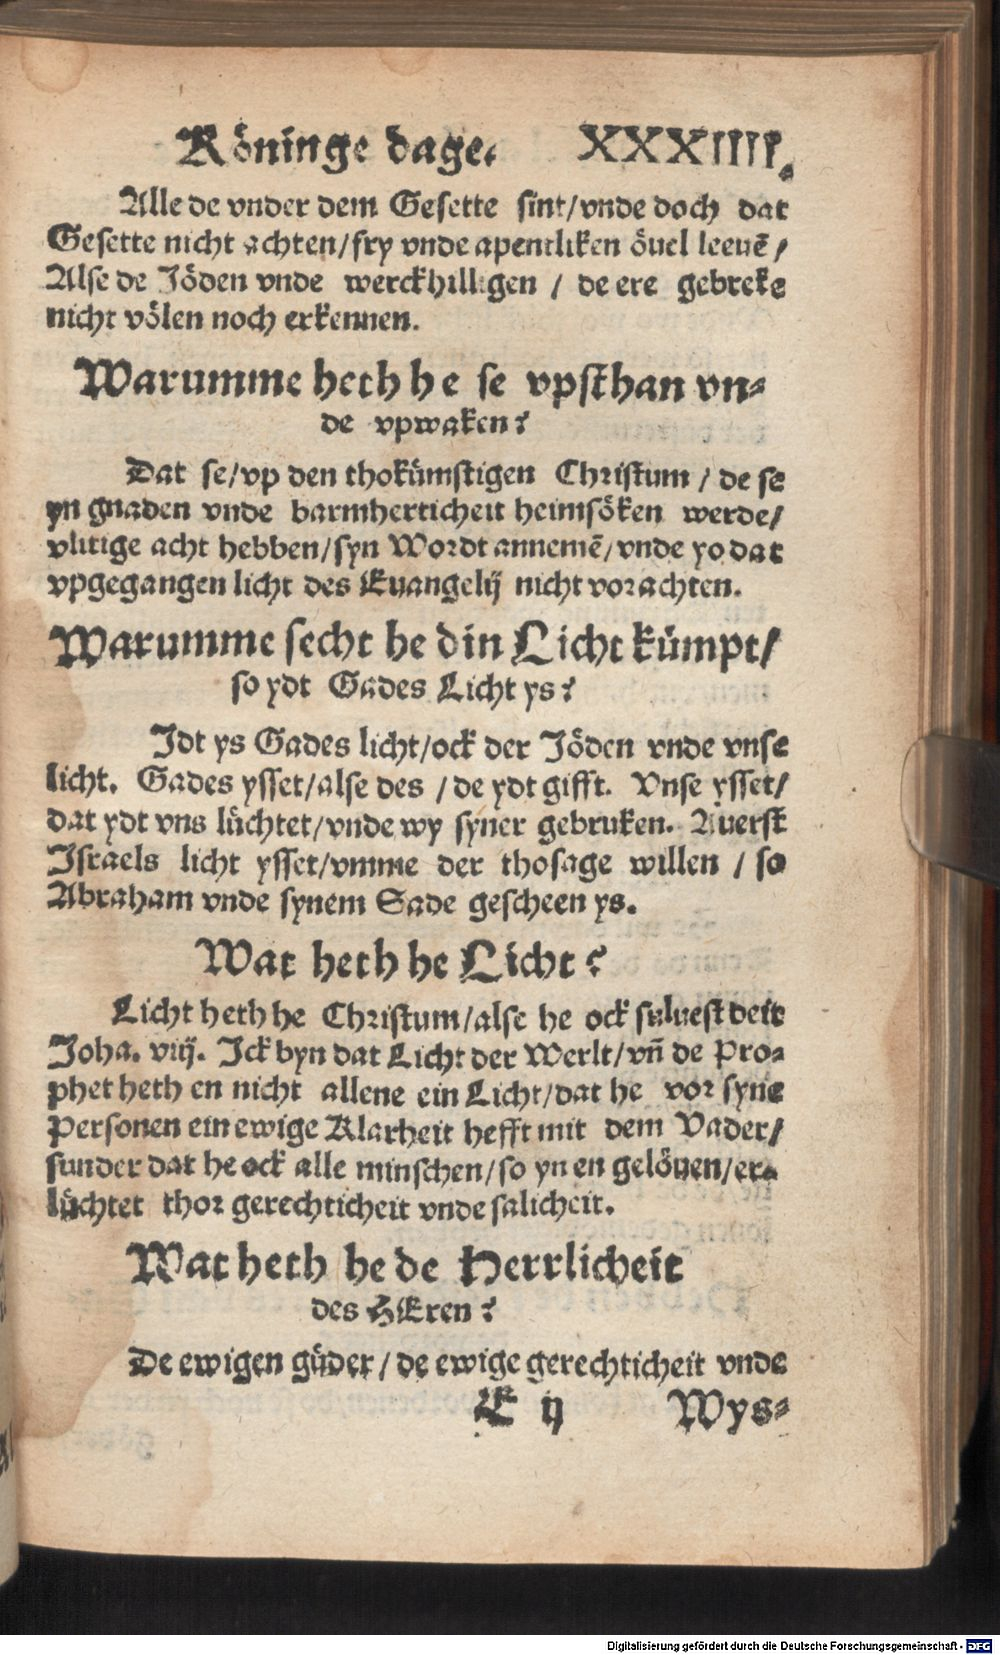 Köninge dage. XXXIIII.
Alle de vnder dem Gesette sint/vnde doch dat
Gesette nicht achten/fry vnde apentliken övel leeuē/
Alse de Jöden vnde werckhilligen / de ere gebreke
nicht völen noch erkennen.
Warumme heth he se vpsthan vn-
de vpwaken?
Dat se/vp den thokümstigen Christum / de se
yn gnaden vnde barmherticheit heimsöken werde/
vlitige acht hebben/syn Wordt annemē/vnde yo dat
vpgegangen licht des Euangelij nicht vorachten.
Warumme secht he din Licht kümpt/
so ydt Gades Licht ys?
Idt ys Gades licht/ock der Jöden vnde vnse
licht. Gades ysset/alse des / de ydt gifft. Vnse ysset/
dat ydt vns lüchtet/vnde wy syner gebruken. Auerst
Israels licht ysset/vmme der thosage willen / so
Abraham vnde synem Sade gescheen ys.
Wat heth he Licht?
Licht heth he Christum/alse he ock suluest deit
Joha. viij. Ick byn dat Licht der Werlt/vñ de Pro-
phet heth en nicht allene ein Licht/dat he vor syne
Personen ein ewige Klarheit hefft mit dem Vader/
sunder dat he ock alle minschen/so yn en gelöuen/er-
lüchtet thor gerechticheit vnde salicheit.
Wat heth he de Herrlicheit
des HEren?
De ewigen güder/de ewige gerechticheit vnde
E ij Wys-
Digitalisierung gefördert durch die Deutsche Forschungsgemeinschaft - DFG